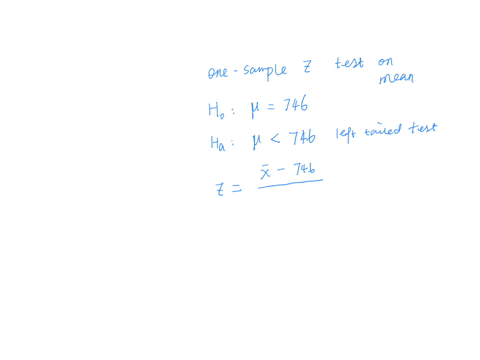 one-sample Z test on mean
H₀: μ = 746
Hₐ: μ < 746 left tailed test
x̄ - 746
z =